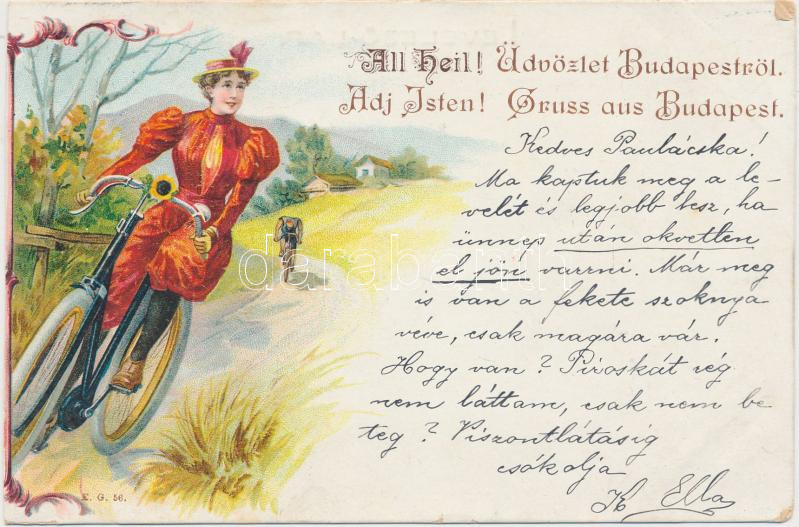 All Heil! Üdvözlet Budapestről.
Adj Isten! Gruss aus Budapest.
Kedves Paulácska!
Ma kaptuk meg a le-
velét és legjobb lesz, ha
ünnep után okvetlen
el jön varrni. Már meg
is van a fekete szoknya
véve, csak magára vár.
Hogy van? Piroskát rég
nem láttam, csak nem be
teg? Viszontlátásig
csókolja
K Ella
E. G. 56.
darabanth